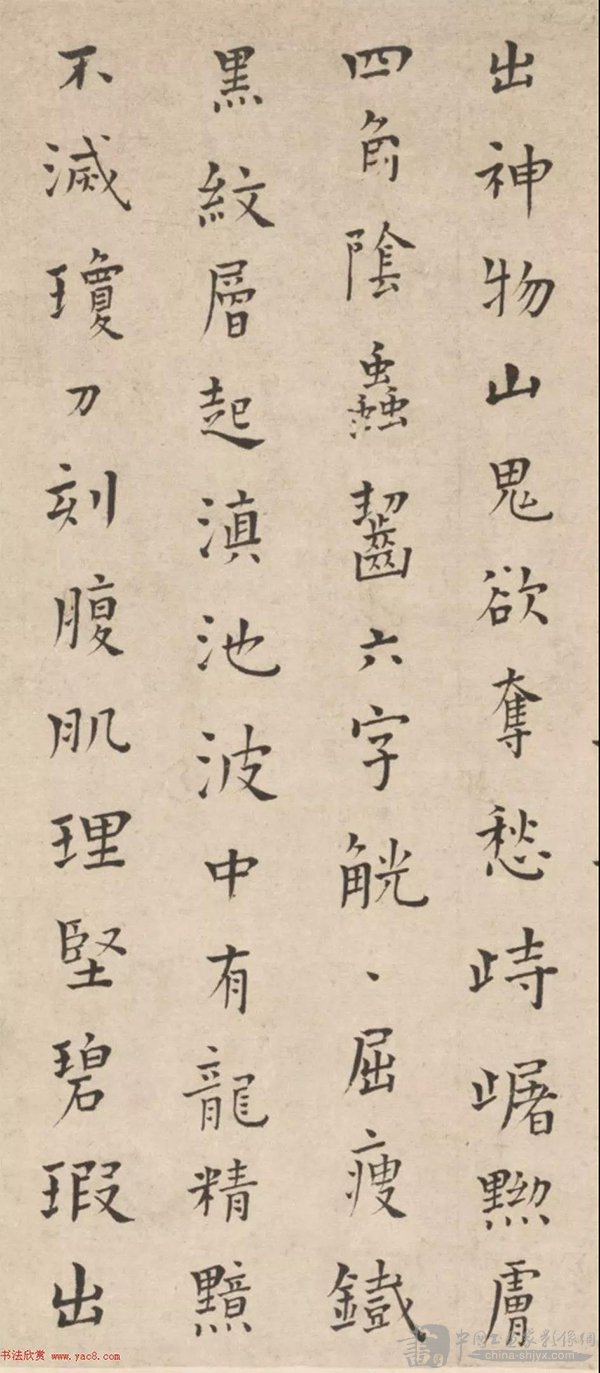 出神物山鬼欲奪愁峙𡸗黝膚
四角陰蟲齧六字觥、屈瘦鐵
黑紋層起滇池波中有龍精黯
不滅瓊刀刻腹肌理堅碧瑕出
书法欣赏 www.yac8.com
china-shjyx.com